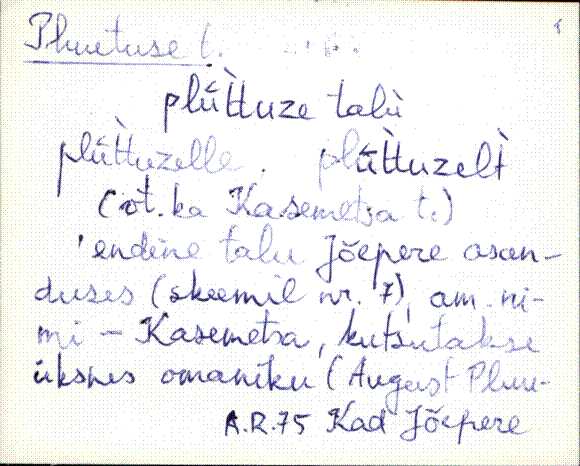 Pluutuse t.
plū̀ttuze talù
plū̀ttuzelle. plū̀ttuzelt̀
(öt. ka Kasemetsa t.)
'endine talu Jõepere asun-
duses (skeemil nr. 7), am. ni-
mi – Kasemetsa, kutsutakse
üksnes omaniku (August Pluu-
A.R.75 Kad Jõepere